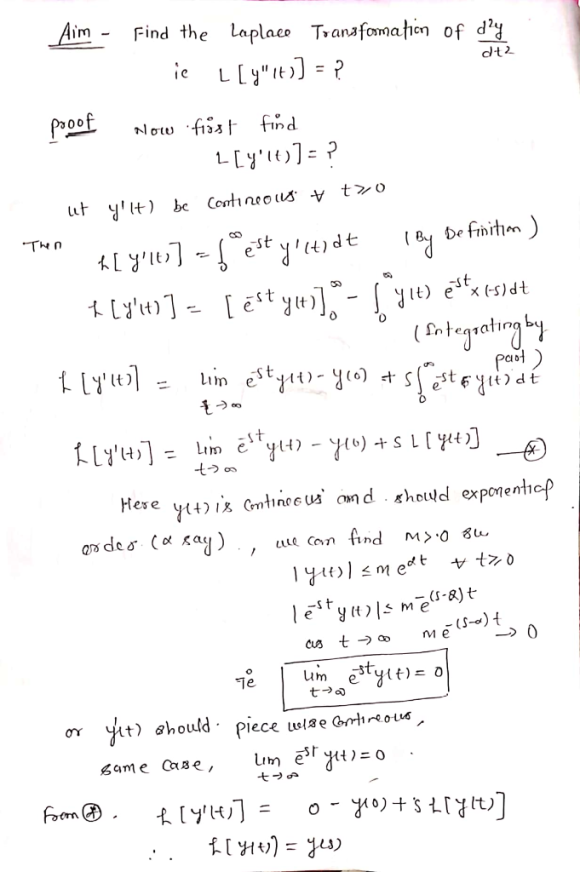 Aim - Find the Laplace Transfomation of d²y/dt²
ie L[y"(t)] = ?
proof Now first find
L[y'(t)] = ?
let y'(t) be Contineous ∀ t≥0
Then £[y'(t)] = ∫₀^∞ e^-st y'(t) dt (By Definition)
£[y'(t)] = [e^-st y(t)]₀^∞ - ∫₀^∞ y(t) e^-st x (-s) dt
(Integrating by part)
£[y'(t)] = lim t→∞ e^-st y(t) - y(0) + s∫₀^∞ e^-st y(t) dt
£[y'(t)] = lim t→∞ e^-st y(t) - y(0) + s L[y(t)] —⊛
Here y(t) is Contineous and should exponential
order (α say), we can find M>0
|y(t)| ≤ m e^αt ∀ t≥0
|e^-st y(t)| ≤ m e^-(s-α)t
as t→∞ m e^-(s-α)t → 0
ie lim t→∞ e^-st y(t) = 0
or y'(t) should piece welse Contineous,
same case, lim t→∞ e^-st y(t) = 0
From ⊛. £[y'(t)] = 0 - y(0) + s £[y(t)]
∴ £[y(t)] = y(s)